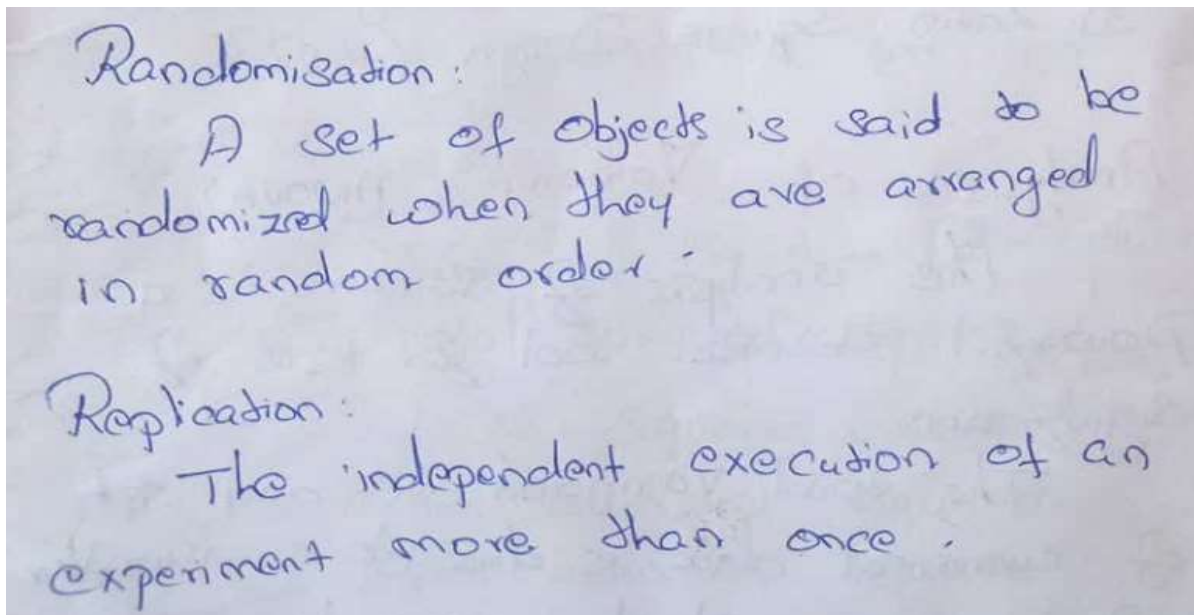 Randomisation:
A set of objects is said to be
randomized when they are arranged
in random order.
Replication:
The independent execution of an
experiment more than once.